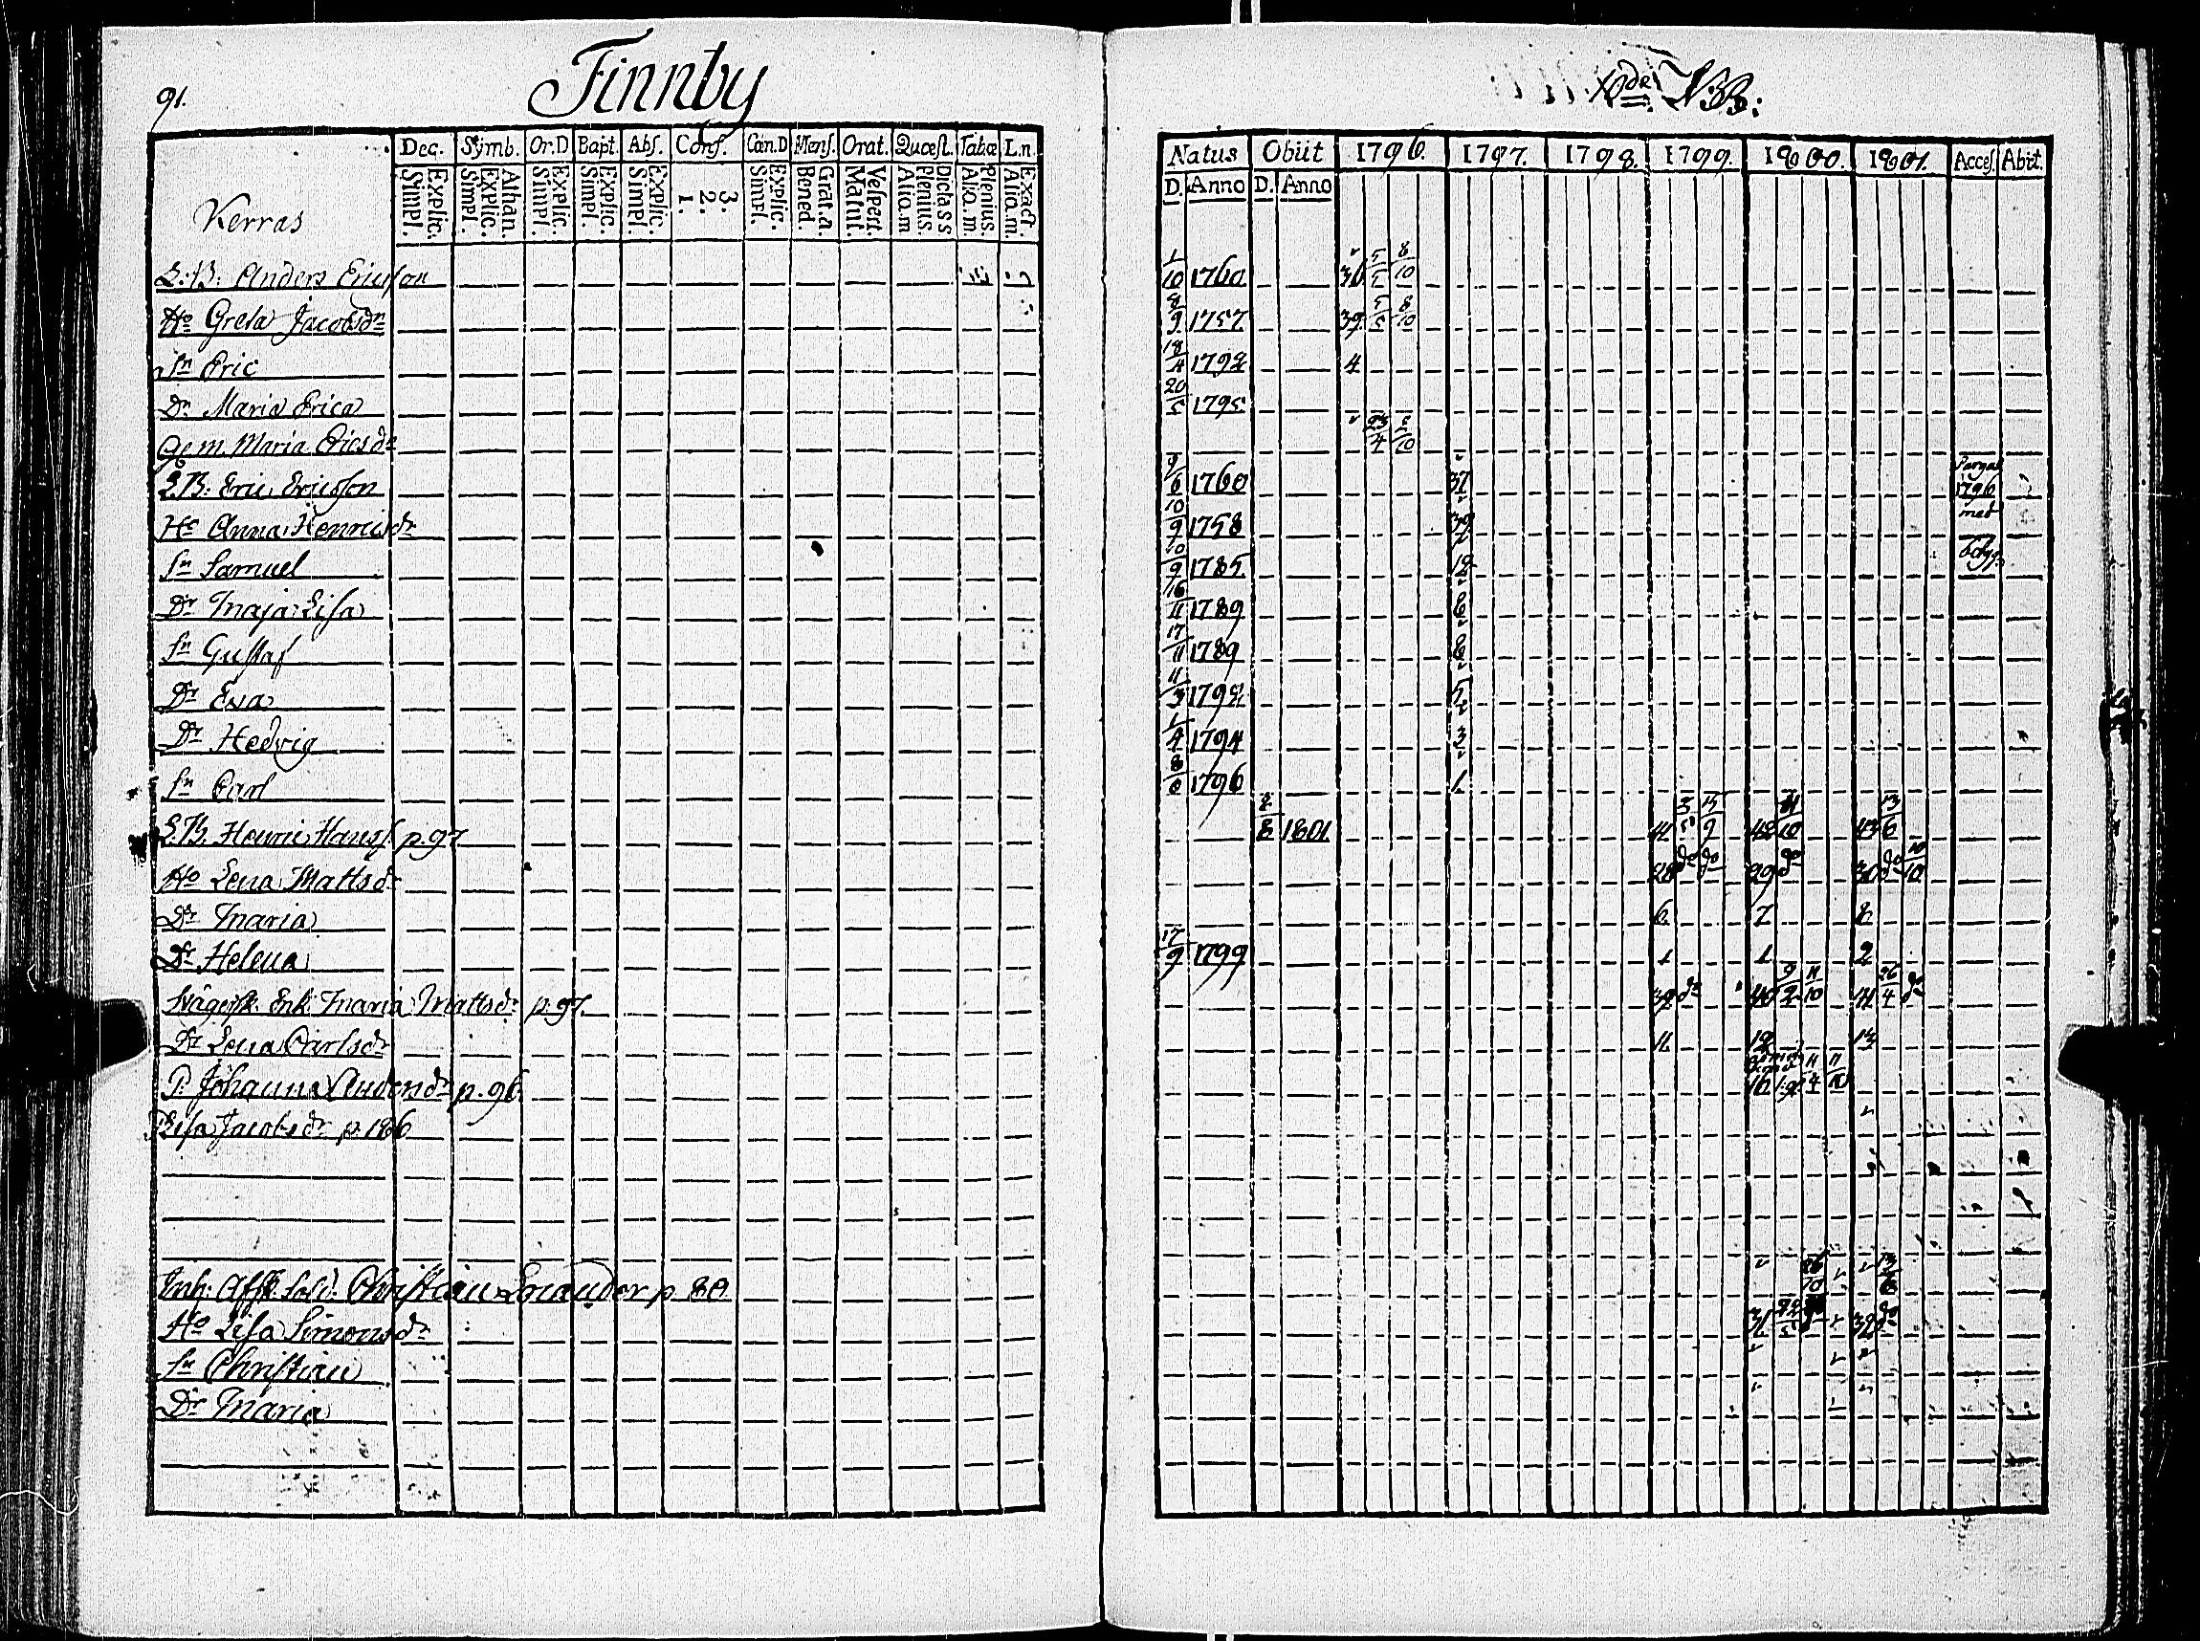 91.
Finnby
10de NB:
Dec. Symb. Or.D Bapt. Abs. Conf. Cæn.D Mens. Orat. Quæst. Tabæ L.n.
Explic. Simpl. Athan. Explic. Simpl. Explic. Simpl. Explic. Simpl. Explic. Simpl. 3. 2. 1. Explic. Simpl. Grat.a. Bened. Vespert. Matut. Dicta S S Plenius. Aliq.m Plenius. Aliq.m Exact. Aliq.m.
Natus Obiit 1796. 1797. 1798. 1799. 1800. 1801. Access. Abiit.
D. Anno D. Anno
Kerras
L:B: Anders Ericsson 1/10 1760 36 5/5 8/10
Ho Greta Jacobsdr 8/9 1757 39 5/5 8/10
Sn Eric 18/4 1792 4
Dr Maria Erica 20/5 1795
Gem. Maria Ericsdr 23/4 2/10
L.B: Eric Ericsson 9/6 1760 37 Pargas 1796 med
Ho Anna Henricsdr 10/9 1758 39
Sn Samuel 10/9 1785 12
Dr Maja Lisa 16/11 1789 8
Sn Gustaf 17/11 1789 8
Dr Eva 11/3 1792 5
Dr Hedvig 1/4 1794 3
Sn Carl 8/8 1796 1
L.B. Henric Hanss. p.97 2/8 1801 41 42 43 13/6
Ho Lena Mattsdr 28 do do 29 do 30 do 10/10
Dr Maria 6 7 8
Dr Helena 17/9 1799 1 1 2
Svägersk. Enk. Maria Mattsdr p.97. 39 do 40 9/2 11/10 41 26/4 do
Dr Lena Carlsdr 11 12 13
P. Johanna Andersdr p.96 16 11/4 11/10
P. Lisa Jacobsdr p.186
Inh. Afsk. Sold. Christian Enander p 80 26/10 13/6
Ho Lisa Simonsdr 31 22/5 32 do
Sn Christian
Dr Maria